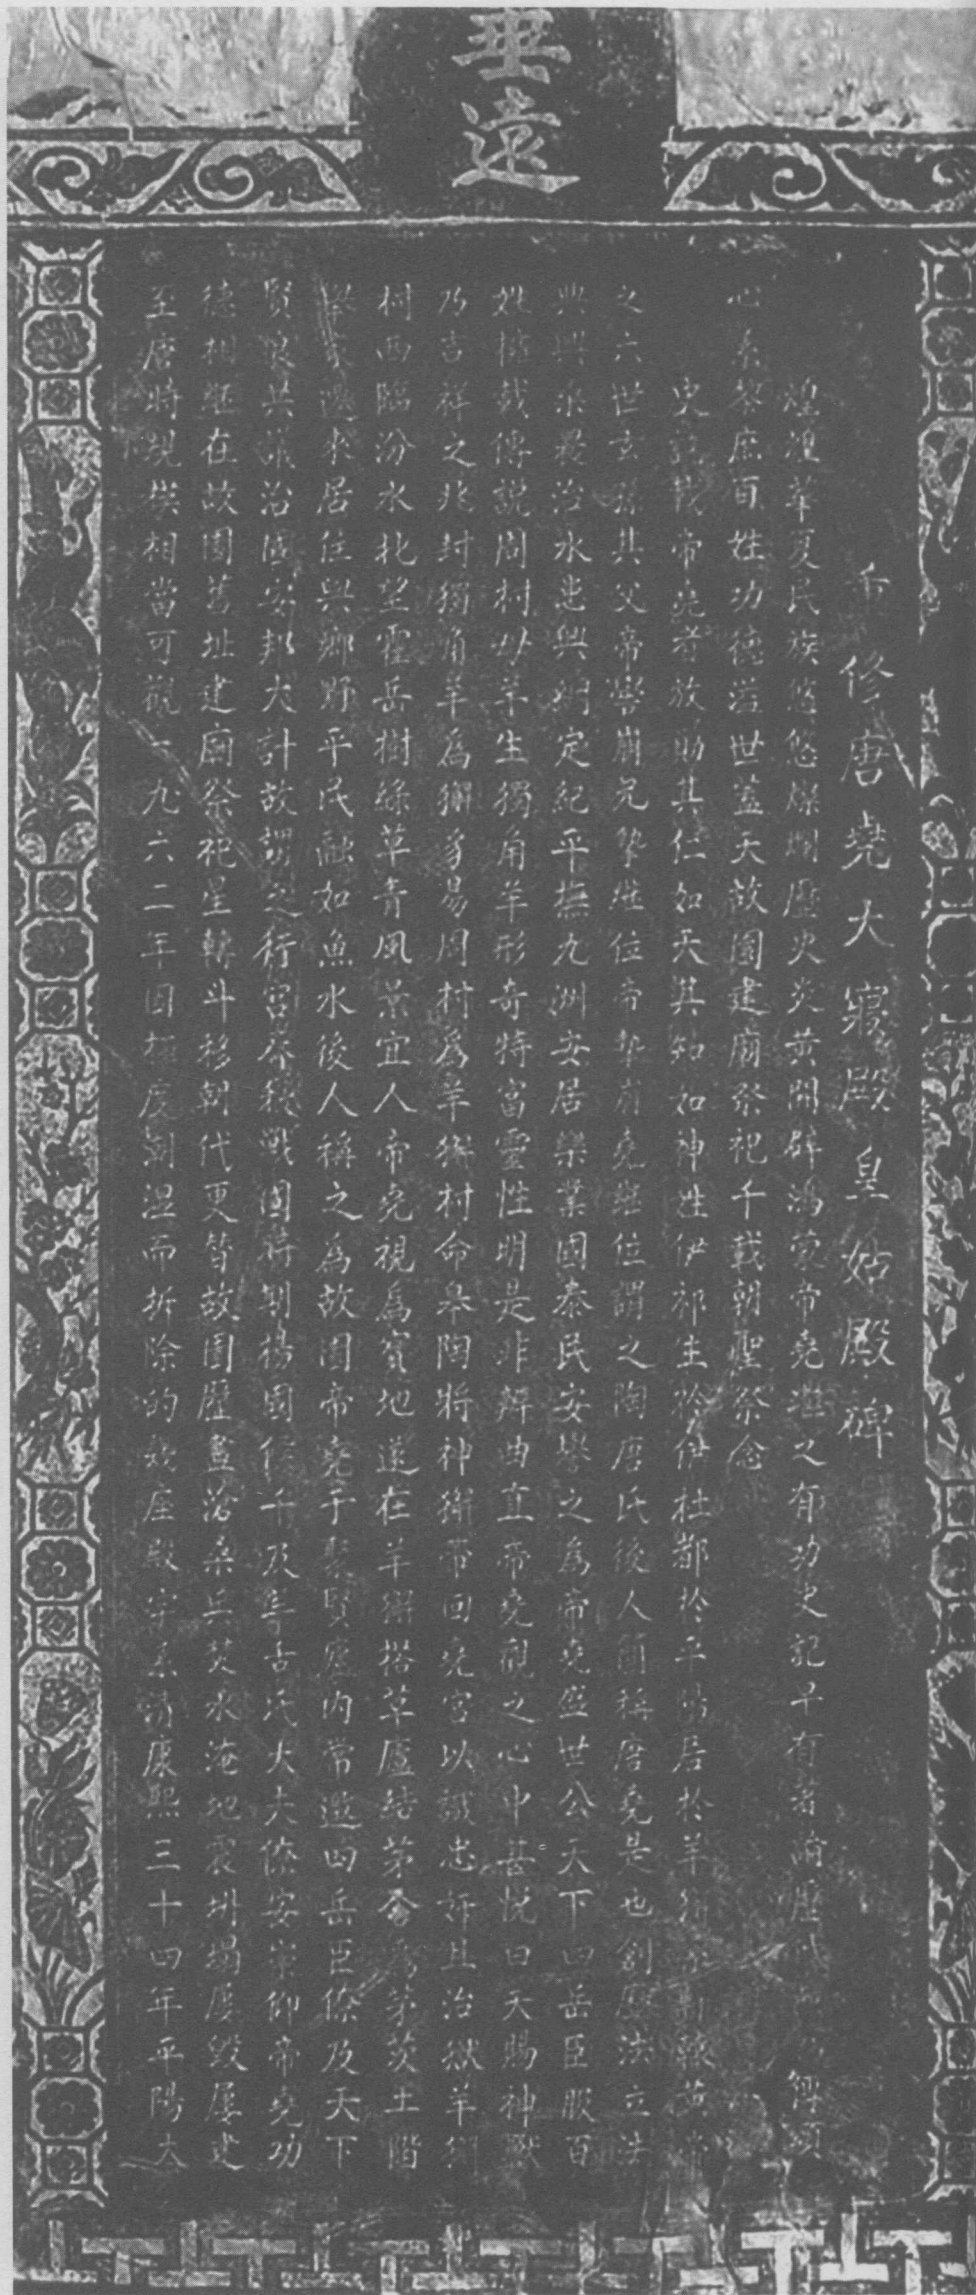 垂遠
重修唐堯大寢殿皇姑殿碑
煌煌華夏民族悠悠燦爛歷史炎黃開辟鴻蒙帝堯繼之有功史記早有著論歷代傳頌
心系黎庶百姓功德溢世蓋天故園建廟祭祀千載朝聖祭念
史記載帝堯者放勛其仁如天其知如神姓伊祁生於伊杜都於平陽居於羊獬黃帝
之六世玄孫其父帝嚳崩兄摯繼位帝摯崩堯繼位謂之陶唐氏後人簡稱唐堯是也創曆法立法
典興農桑治水患興綱定紀平撫九洲安居樂業國泰民安譽之為帝堯盛世公天下四岳臣服百
姓擁戴傳說周村母羊生獨角羊形奇特富靈性明是非辨曲直帝堯觀之心中甚悅曰天賜神獸
乃吉祥之兆封獨角羊為獬豸易周村為羊獬村命皋陶將神獬帶回堯宮以識忠奸且治獄羊獬
村西臨汾水北望霍岳樹綠草青風景宜人帝堯視為寶地遂在羊獬搭草廬結茅舍為茅茨土階
舉家遷來居住與鄉野平民融如魚水後人稱之為故園帝堯于聚賢廬內常邀四岳臣僚及天下
賢良共議治國安邦大計故謂之行宮春秋戰國時期楊國侯千及隼古氏大夫僚安崇仰帝堯功
德相繼在故園舊址建廟祭祀星轉斗移朝代更替故園歷盡滄桑兵焚水淹地震坍塌屢毀屢建
至唐時規模相當可觀一九六二年因極度潮湿而拆除的姑座殿宇系清康熙三十四年平陽大